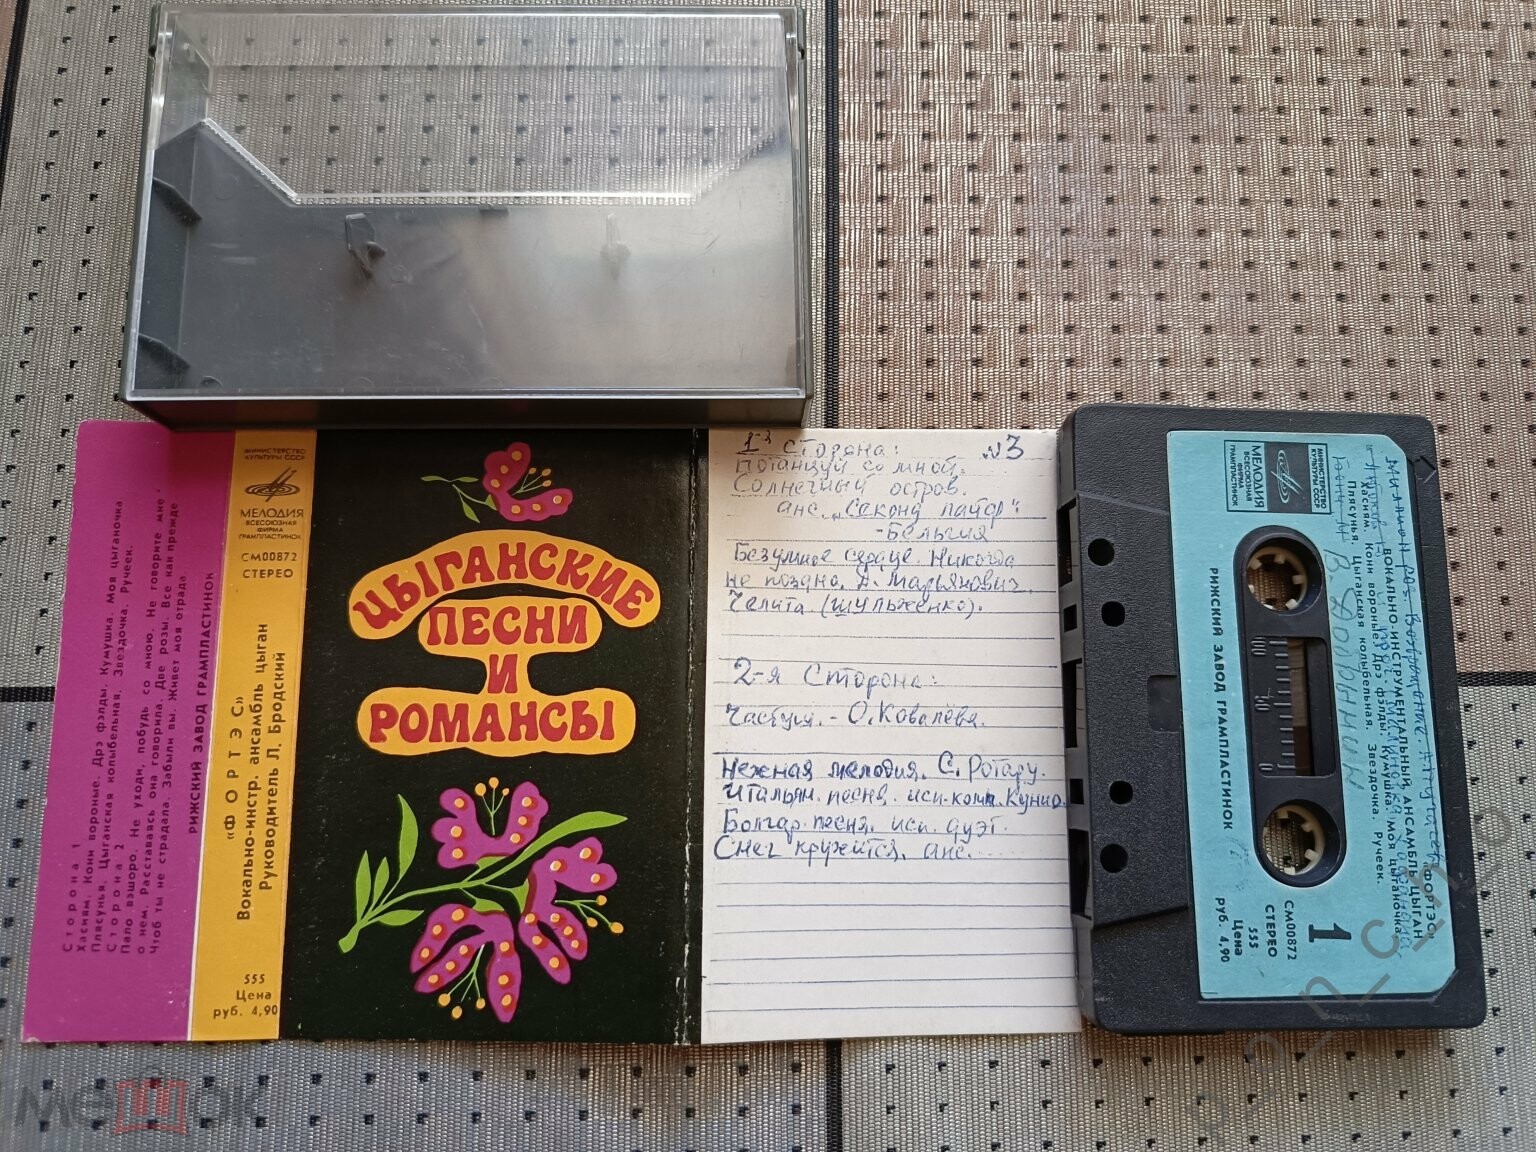 Сторона 1
Хасиям. Кони вороные. Дрэ фэлды. Кумушка. Моя цыганочка.
Плясунья. Цыганская колыбельная. Звездочка. Ручеек.
Сторона 2
Пало вэшоро. Не уходи, побудь со мною. Не говорите мне
о нем. Расставаясь, она говорила. Две розы. Все как прежде
Чтоб ты не страдала. Забыли вы. Живет моя отрада
РИЖСКИЙ ЗАВОД ГРАМПЛАСТИНОК
МИНИСТЕРСТВО
КУЛЬТУРЫ СССР
МЕЛОДИЯ
ВСЕСОЮЗНАЯ
ФИРМА
ГРАМПЛАСТИНОК
СМ00872
СТЕРЕО
«ФОРТЭС»
Вокально-инстр. ансамбль цыган
Руководитель Л. Бродский
555
Цена
руб. 4,90
ЦЫГАНСКИЕ
ПЕСНИ
И
РОМАНСЫ
1я Сторона: №3
Потанцуй со мной.
Солнечный остров.
анс. „Секонд лайф“
-Бельгия
Безумное сердце. Никогда
не поздно. Р. Марьянович.
Челита (Шульженко).
2-я Сторона:
Частуля - О. Ковалёва.
Нежная мелодия. С. Ротару.
Итальян. песня. исп. комп. Кунио.
Болгар. песня. исп. дуэт.
Снег кружится. анс.
МИНИСТЕРСТВО
КУЛЬТУРЫ СССР
МЕЛОДИЯ
ВСЕСОЮЗНАЯ
ФИРМА
ГРАМПЛАСТИНОК
Миллион роз.
«ФОРТЭС»
ВОКАЛЬНО-ИНСТРУМЕНТАЛЬНЫЙ АНСАМБЛЬ ЦЫГАН
Хасиям. Кони вороные. Дрэ фэлды. Кумушка. Моя цыганочка
Плясунья. Цыганская колыбельная. Звездочка. Ручеек.
В. Добрынин
РИЖСКИЙ ЗАВОД ГРАМПЛАСТИНОК
100 50 0
1
СМ00872
СТЕРЕО
555
Цена
руб. 4,90
мешок